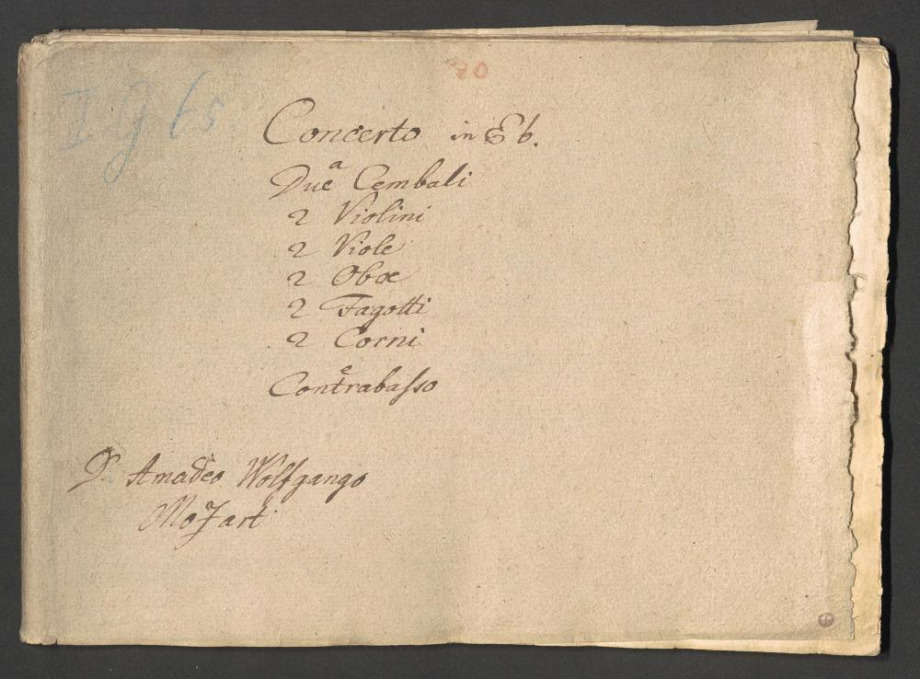 70
I g 65
Concerto in Eb.
a
Due Cembali
2 Violini
2 Viole
2 Oboe
2 Fagotti
2 Corni
e
Contrabaſso
D. Amadeo Wolfgango
Mozart